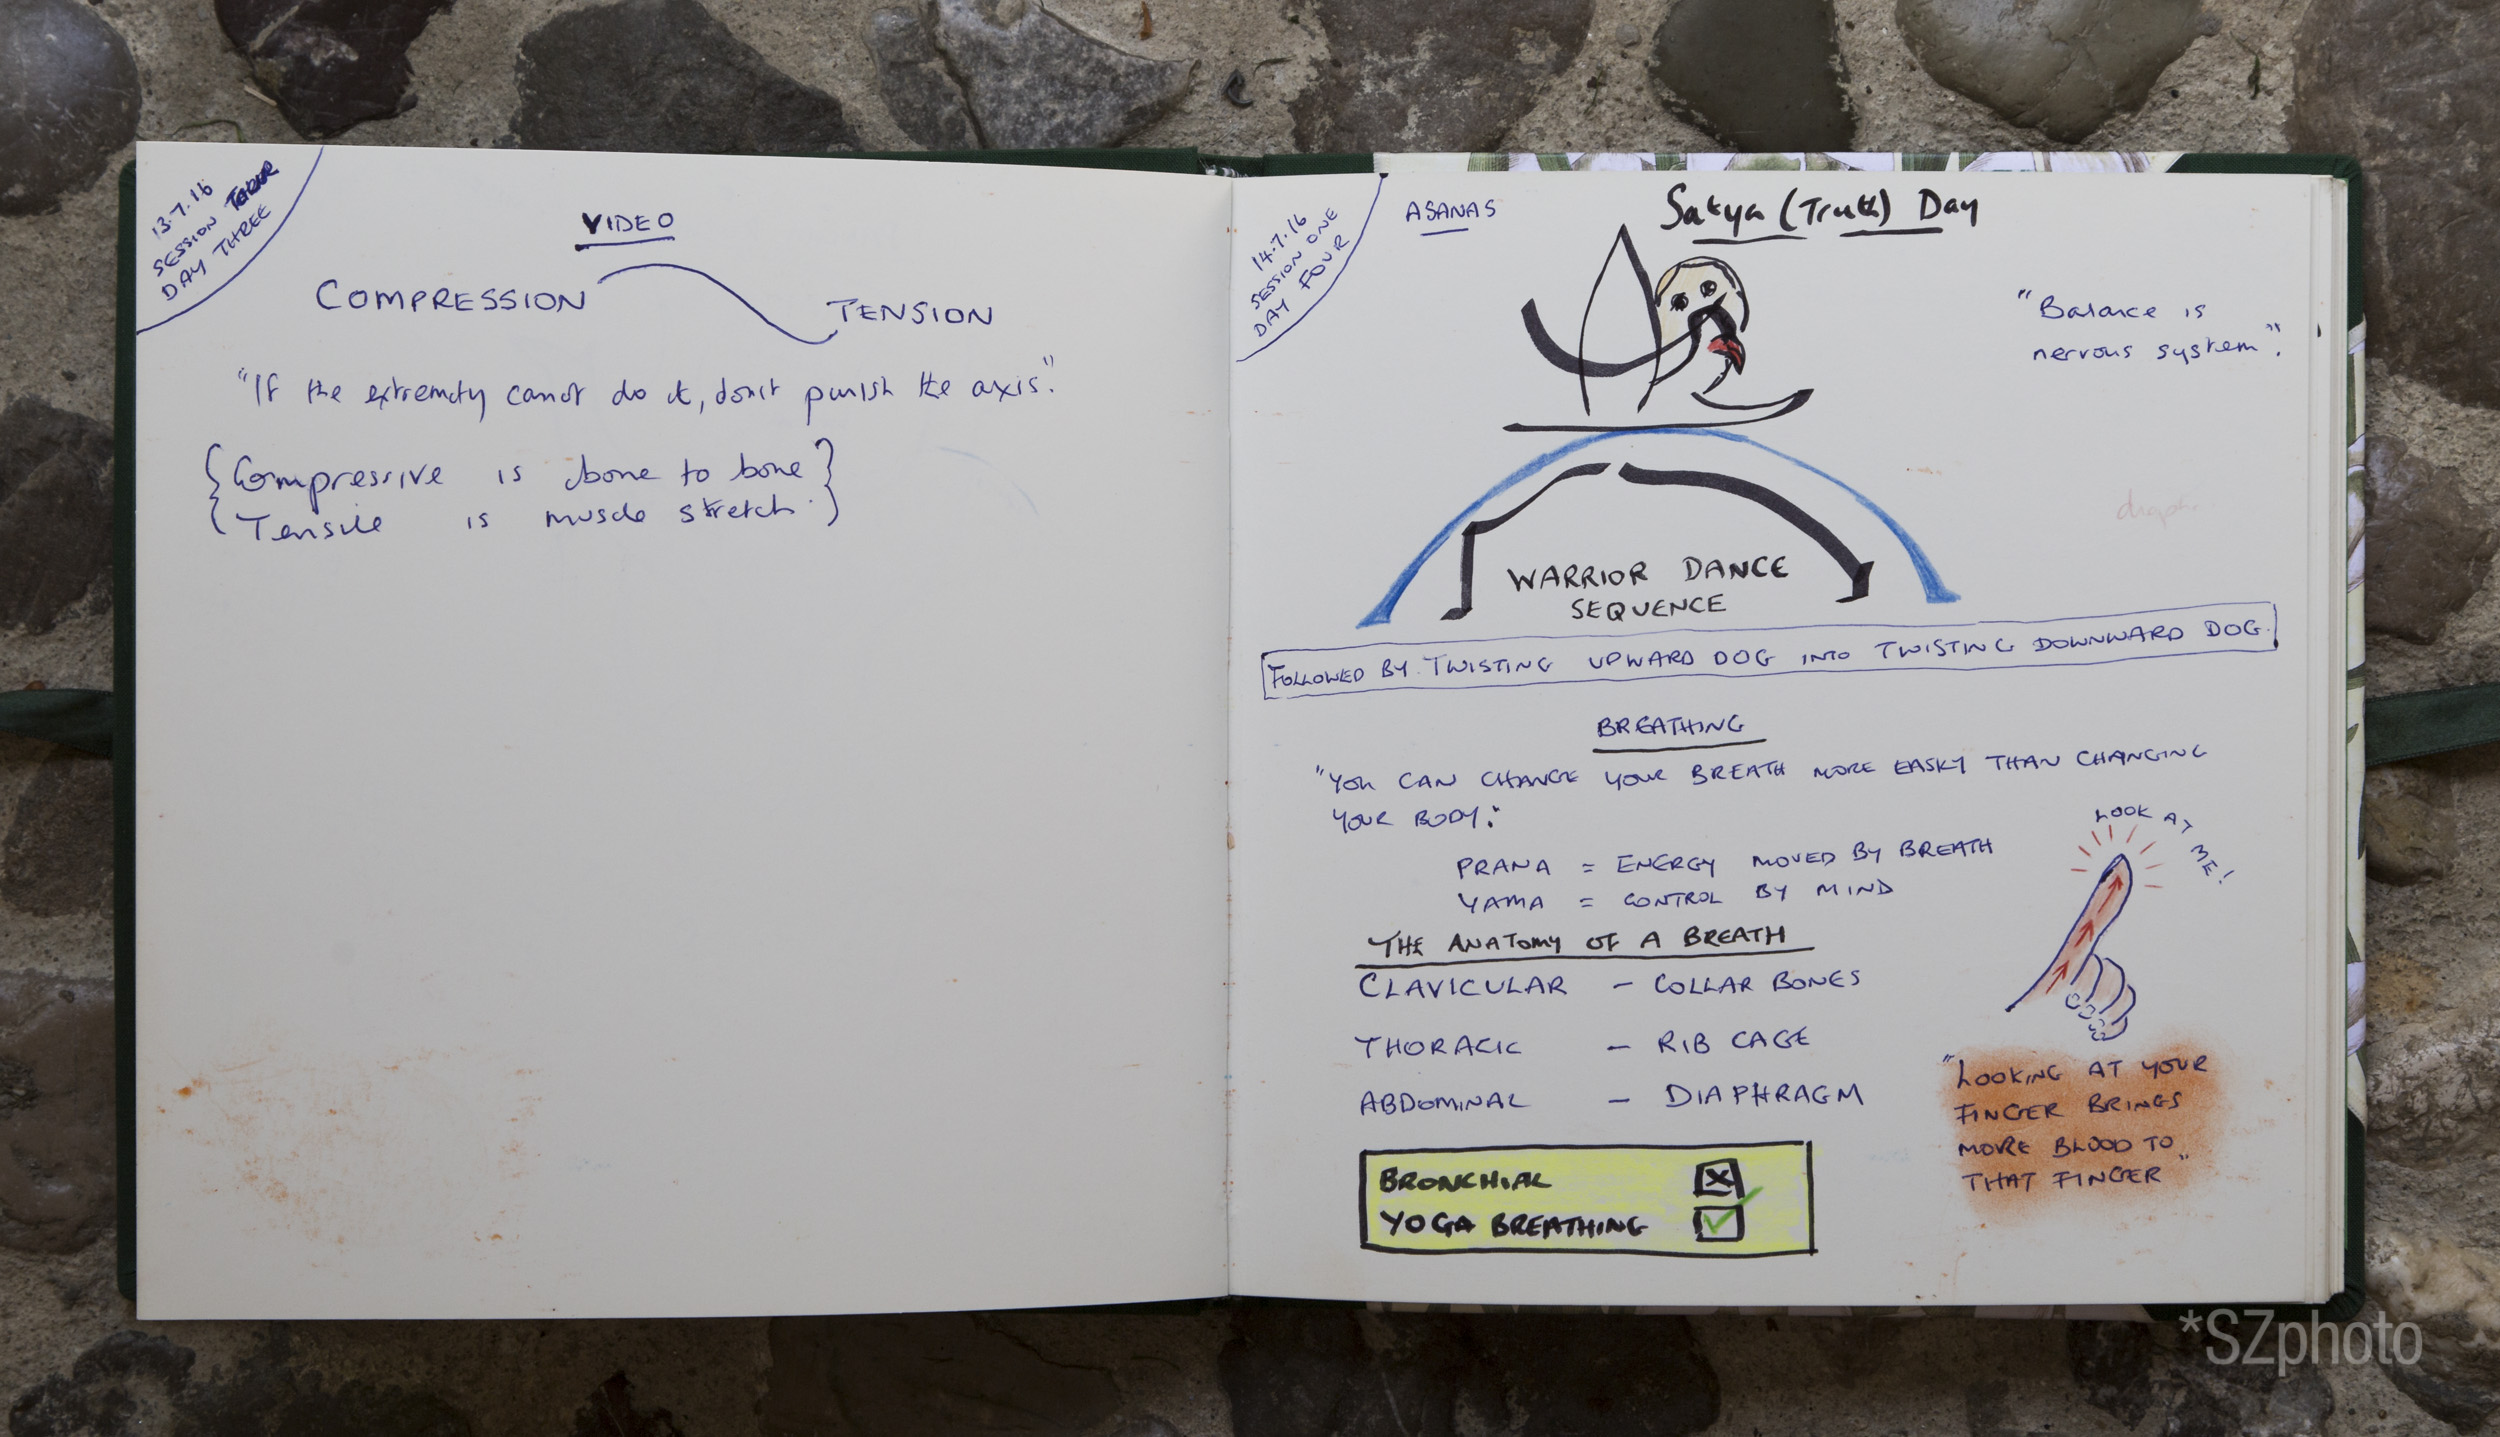 13.7.16
SESSION
DAY THREE
VIDEO
COMPRESSION
TENSION
"If the extremity cannot do it, don't punish the axis."
{Compressive is bone to bone}
{Tensile is muscle stretch.}
14.7.16
SESSION ONE
DAY FOUR
ASANAS
Satya (Truth) Day
"Balance is
nervous system".
WARRIOR DANCE
SEQUENCE
FOLLOWED BY TWISTING UPWARD DOG INTO TWISTING DOWNWARD DOG.
BREATHING
"YOU CAN CHANGE YOUR BREATH MORE EASILY THAN CHANGING
YOUR BODY."
PRANA = ENERGY MOVED BY BREATH
YAMA = CONTROL BY MIND
THE ANATOMY OF A BREATH
CLAVICULAR - COLLAR BONES
THORACIC - RIB CAGE
ABDOMINAL - DIAPHRAGM
BRONCHIAL
YOGA BREATHING
LOOK AT ME!
"LOOKING AT YOUR
FINGER BRINGS
MORE BLOOD TO
THAT FINGER"
*SZphoto